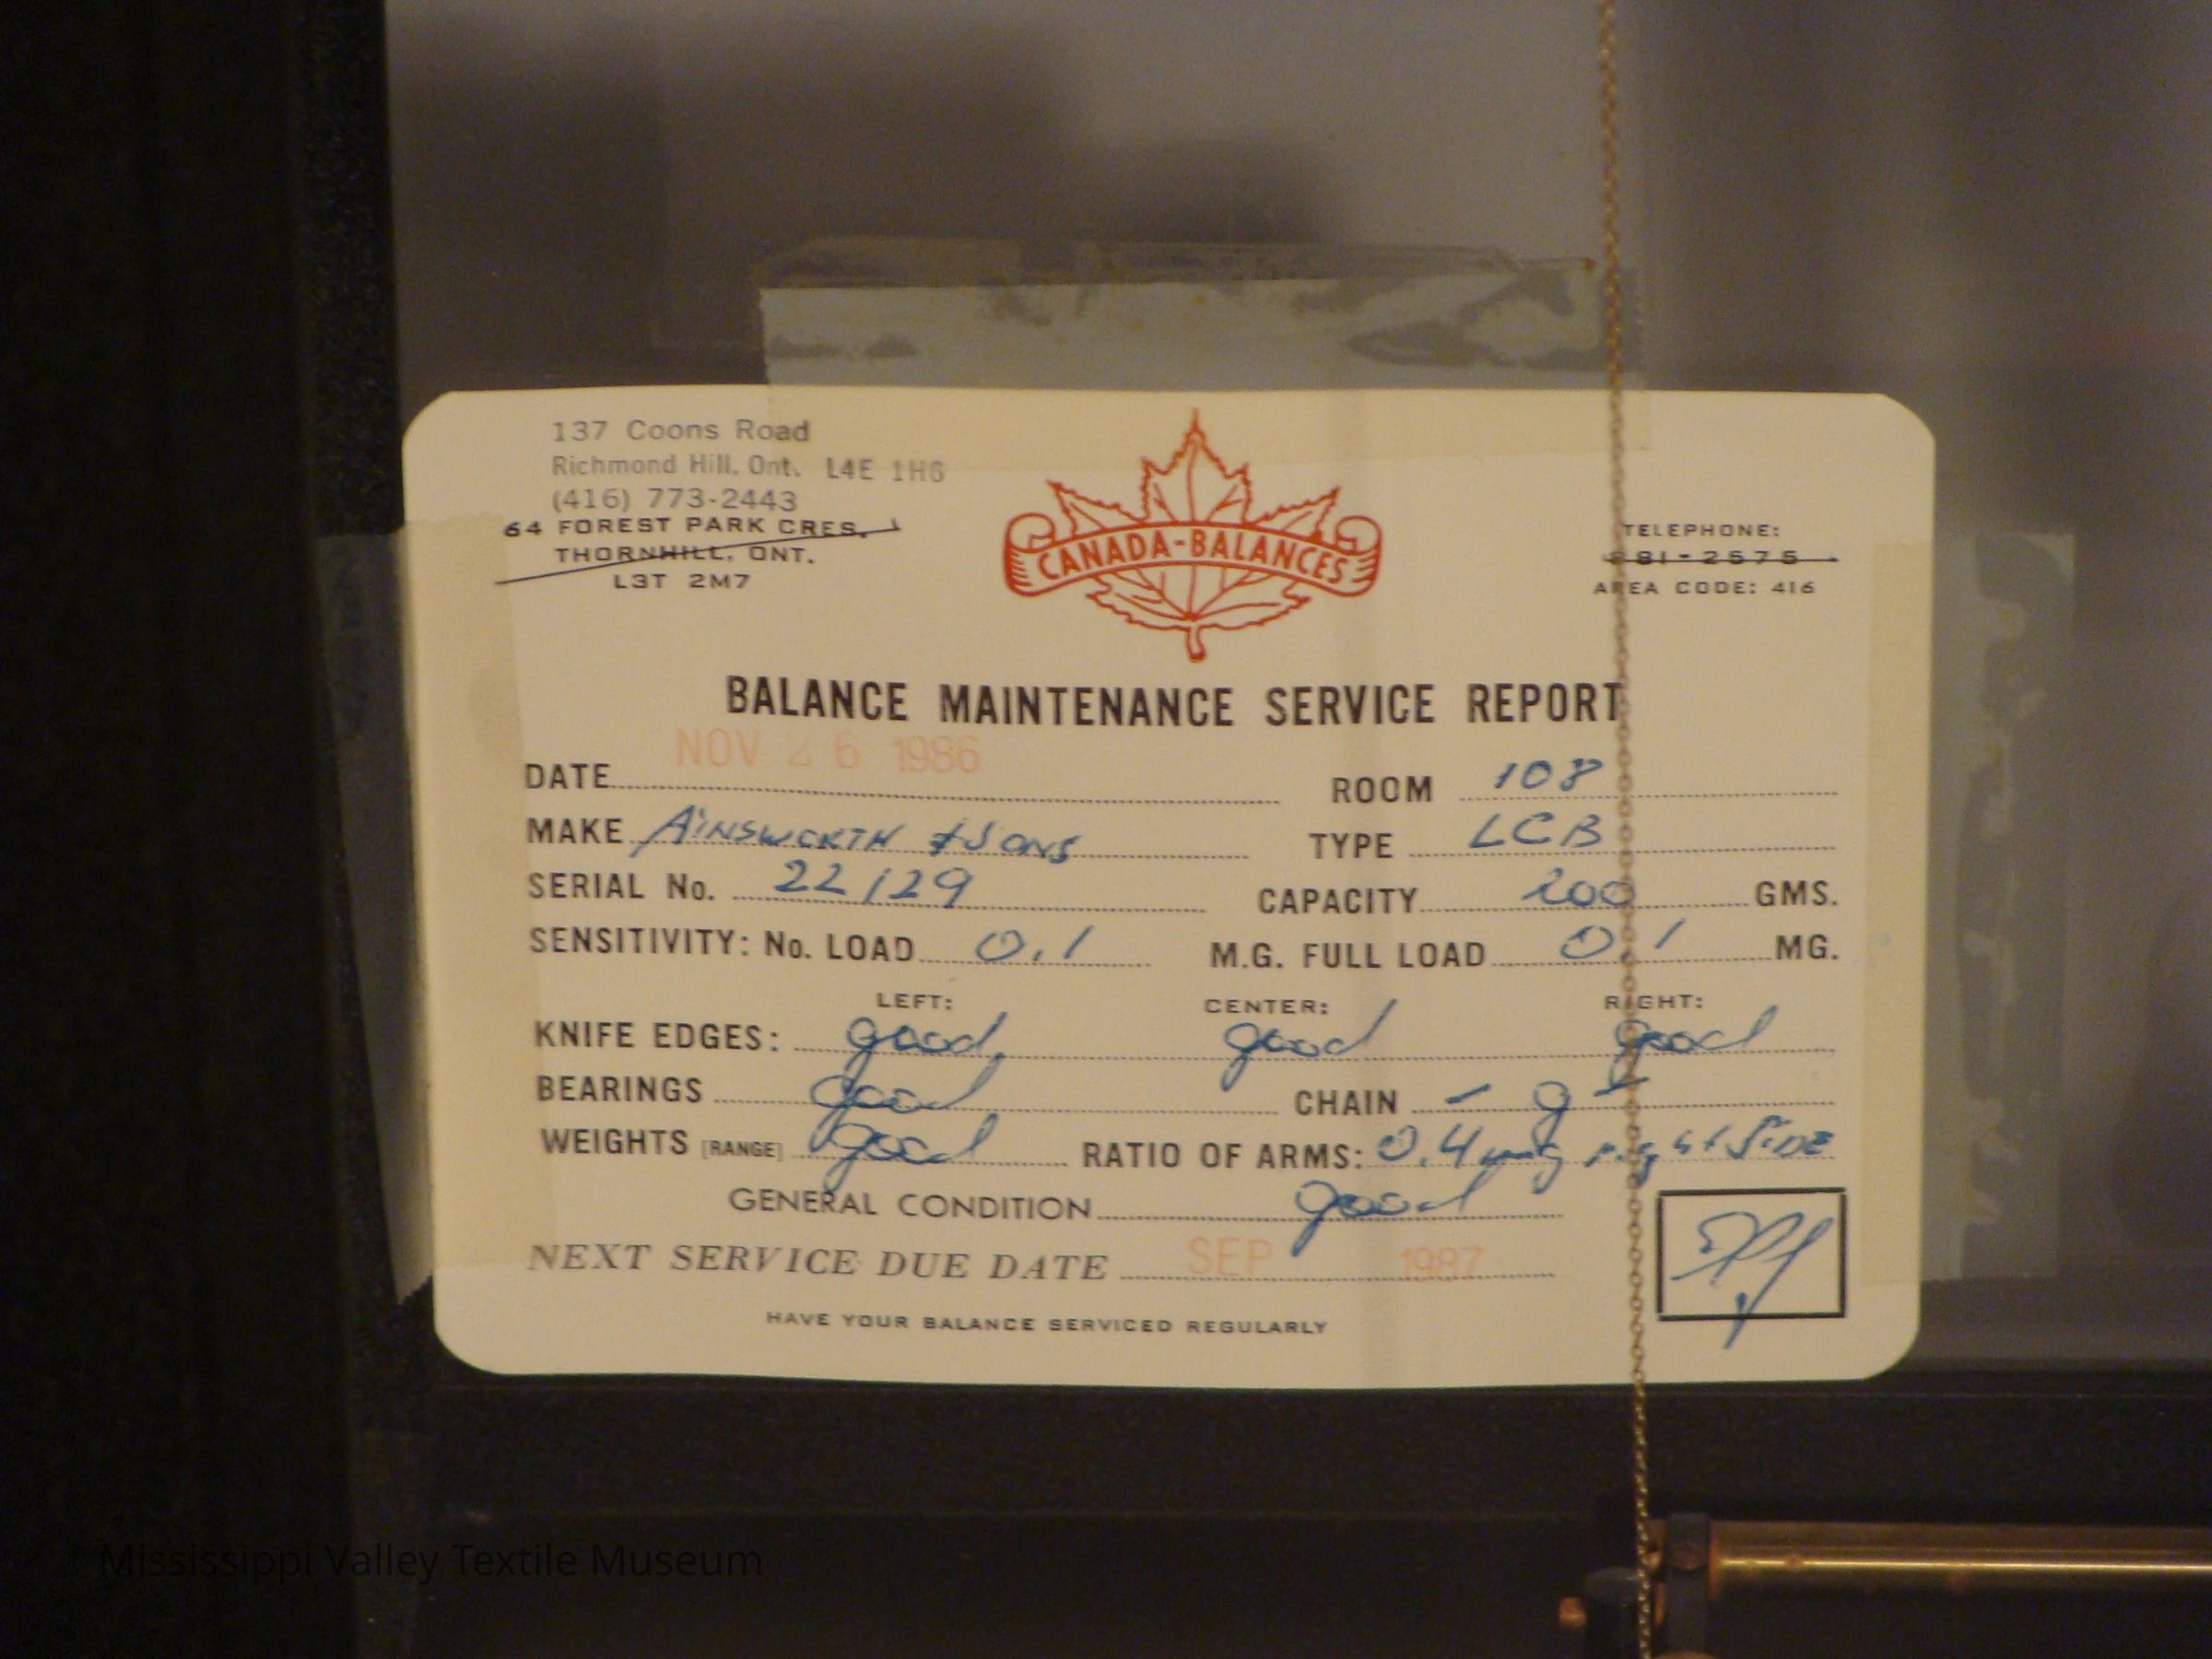 137 Coons Road
Richmond Hill, Ont. L4E 1H6
(416) 773-2443
64 FOREST PARK CRES.
THORNHILL, ONT.
L3T 2M7
CANADA-BALANCES
TELEPHONE:
881-2575
AREA CODE: 416
BALANCE MAINTENANCE SERVICE REPORT
DATE NOV 26 1986 ROOM 108
MAKE AINSWORTH & SONS TYPE LCB
SERIAL No. 22129 CAPACITY 200 GMS.
SENSITIVITY: No. LOAD 0.1 M.G. FULL LOAD 0.1 MG.
LEFT: CENTER: RIGHT:
KNIFE EDGES: good good good
BEARINGS good CHAIN - g -
WEIGHTS [RANGE] good RATIO OF ARMS: 0.4 mg right SIDE
GENERAL CONDITION good
NEXT SERVICE DUE DATE SEP 1987
HAVE YOUR BALANCE SERVICED REGULARLY
Mississippi Valley Textile Museum